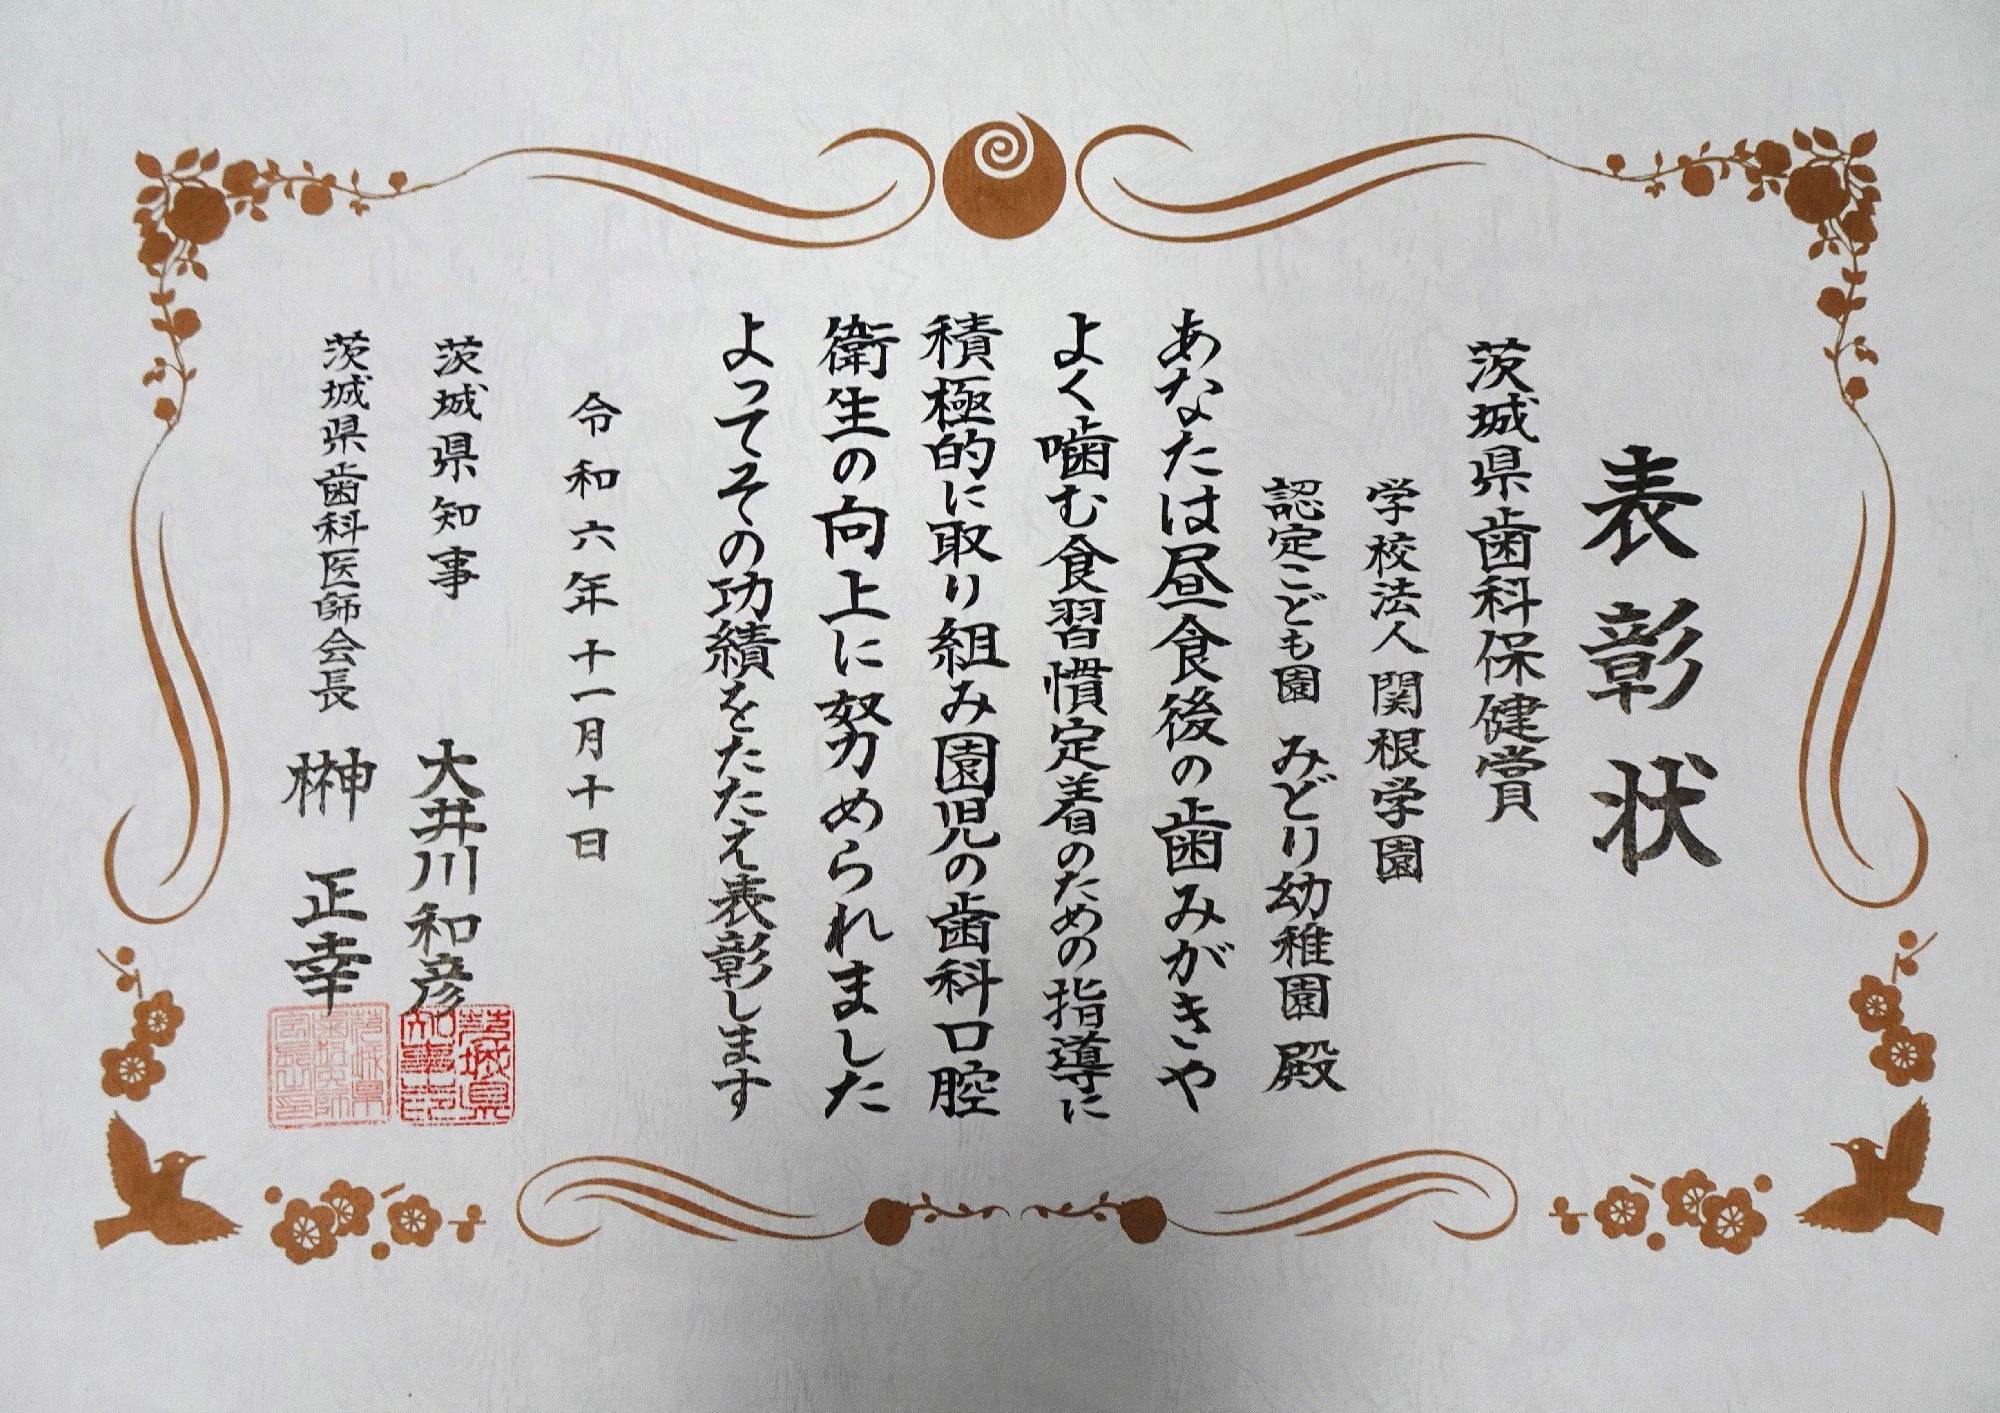 表彰状
茨城県歯科保健賞
学校法人 関根学園
認定こども園 みどり幼稚園 殿
あなたは昼食後の歯みがきや
よく噛む食習慣定着のための指導に
積極的に取り組み園児の歯科口腔
衛生の向上に努められました
よってその功績をたたえ表彰します
令和六年十一月十日
茨城県知事 大井川和彦
茨城県歯科医師会長 榊 正幸
茨城県知事印